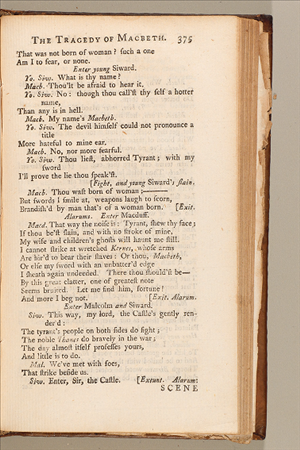 THE TRAGEDY OF MACBETH. 375
That was not born of woman? such a one
Am I to fear, or none.
Enter young Siward.
Yo. Siw. What is thy name?
Macb. Thou'lt be afraid to hear it.
Yo. Siw. No: though thou call'st thy self a hotter
name,
Than any is in hell.
Macb. My name's Macbeth.
Yo. Siw. The devil himself could not pronounce a
title
More hateful to mine ear.
Macb. No, nor more fearful.
Yo. Siw. Thou liest, abhorred Tyrant; with my
sword
I'll prove the lie thou speak'st.
[Fight, and young Siward's slain.
Macb. Thou wast born of woman;———
But swords I smile at, weapons laugh to scorn,
Brandish'd by man that's of a woman born. [Exit.
Alarums. Enter Macduff.
Macd. That way the noise is: Tyrant, shew thy face;
If thou be'st slain, and with no stroke of mine,
My wife and children's ghosts will haunt me still.
I cannot strike at wretched Kernes, whose arms
Are hir'd to bear their staves: Or thou, Macbeth,
Or else my sword with an unbatter'd edge
I sheath again undeeded. There thou should'st be—
By this great clatter, one of greatest note
Seems bruited. Let me find him, fortune!
And more I beg not. [Exit. Alarum.
Enter Malcolm and Siward.
Siw. This way, my lord, the Castle's gently ren-
der'd:
The tyrant's people on both sides do fight;
The noble Thanes do bravely in the war;
The day almost itself professes yours,
And little is to do.
Mal. We've met with foes,
That strike beside us.
Siw. Enter, Sir, the Castle. [Exeunt. Alarum:
SCENE